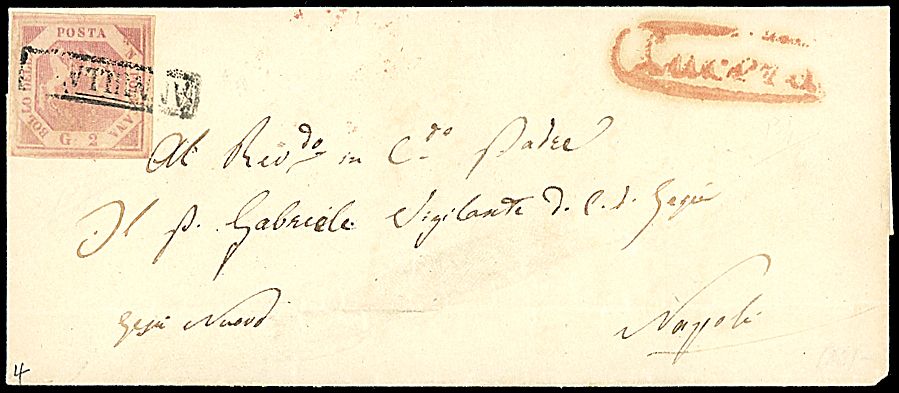 POSTA
BOLLO DELLA
G. 2
ANNULLATO
Al Rev.do in C.do Padre
Il P. Gabriele Vigilante d. C. d. Gesù
Gesù Nuovo
Napoli
4